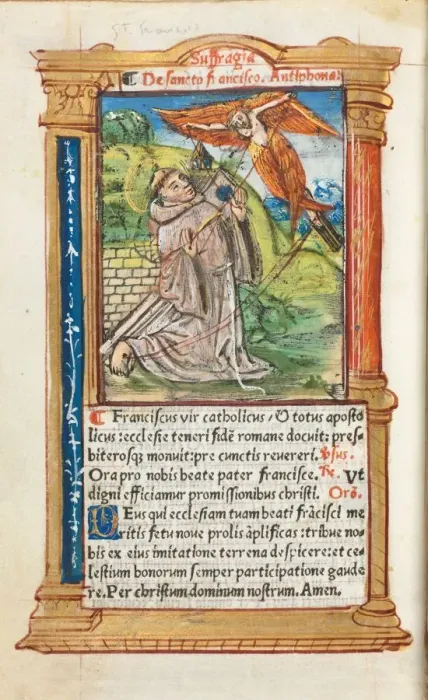 St. Francis
Suffragia
¶ De sancto francisco. Antiphona:
¶ Franciscus vir catholicus / & totus aposto
licus: ecclesie teneri fidē romane docuit: pres-
biterosq; monuit: pre cunctis reuereri. ℣sus.
Ora pro nobis beate pater francisce. ℟. Vt
digni efficiamur promissionibus christi. Orō.
DEus qui ecclesiam tuam beati frācisci me
ritis fetu noue prolis āplificas: tribue no-
bis ex eius imitatione terrena despicere: et ce-
lestium bonorum semper participatione gaude
re. Per christum dominum nostrum. Amen.